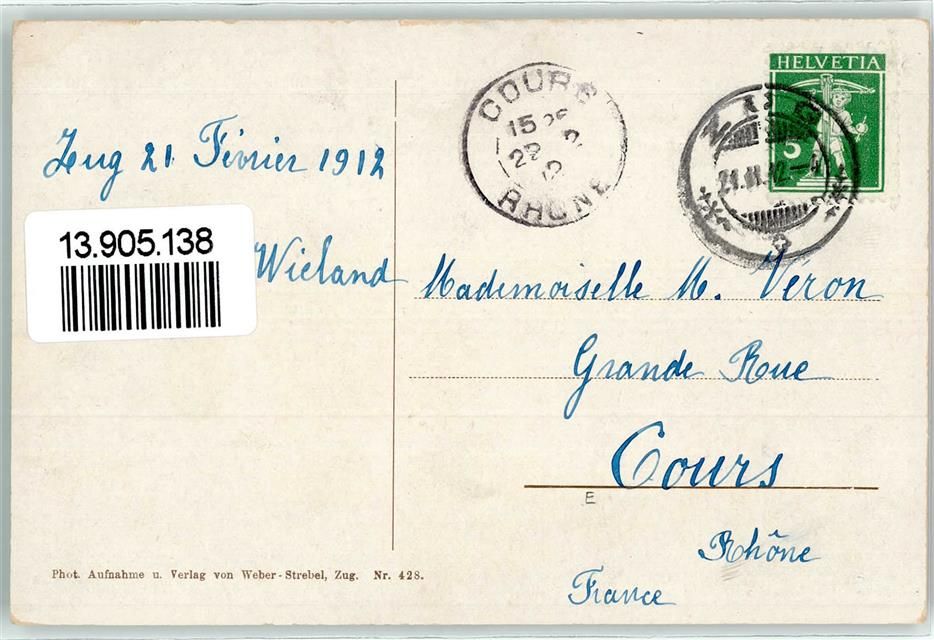 Zug 21 Février 1912
13.905.138
Wieland
COURS
15
22 2
12
RHÔNE
HELVETIA
5
ZUG
21.II.12.-4
Mademoiselle M. Veron
Grande Rue
Cours
E
Rhône
France
Phot. Aufnahme u. Verlag von Weber-Strebel, Zug. Nr. 428.